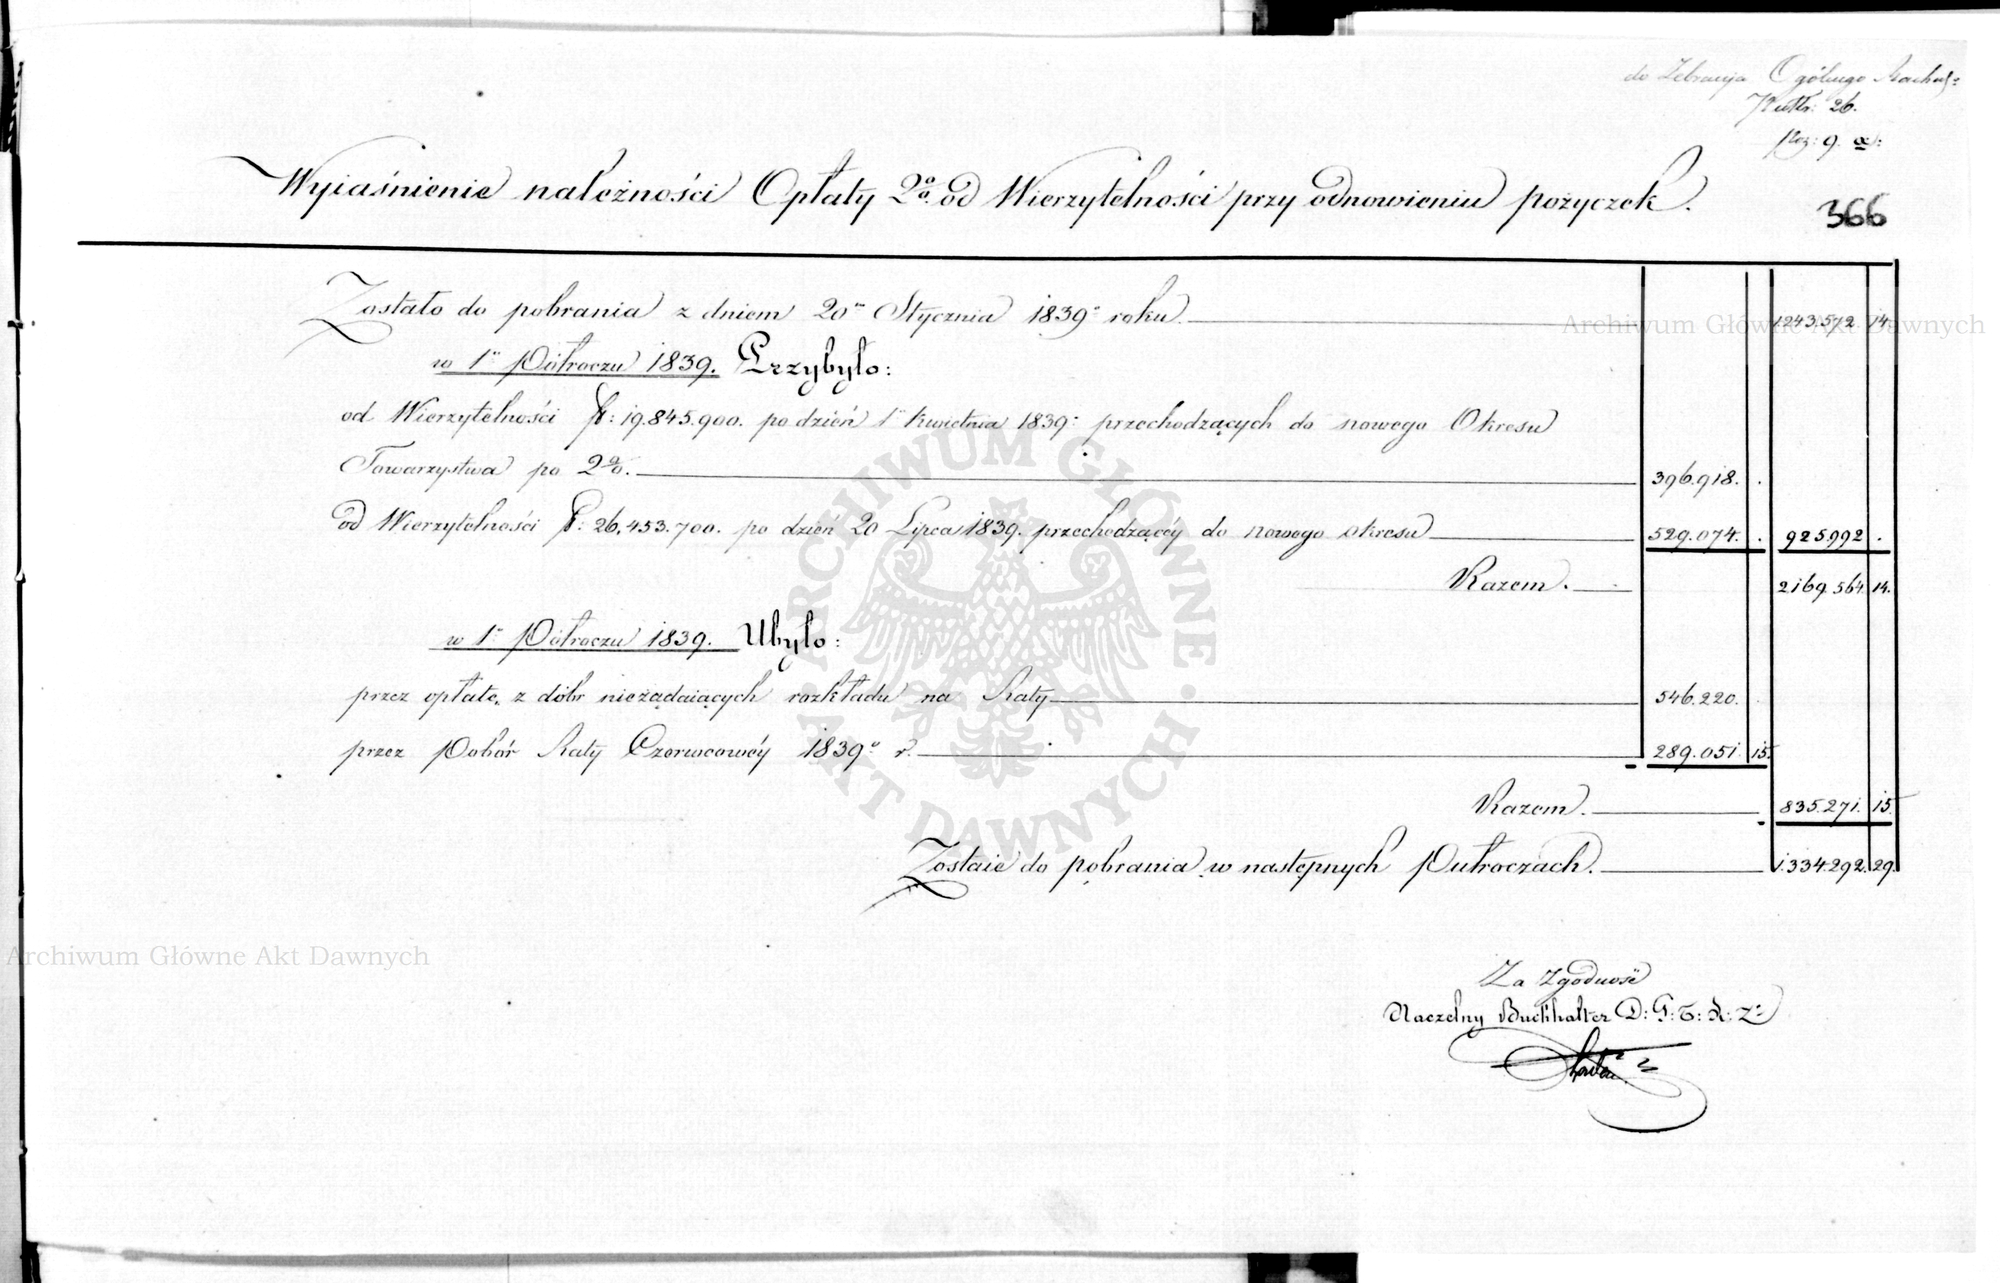 do Zebrania Ogólnego Rachu:
Num: 26.
Poz: 9. a:
366
Wyiaśnienie należności Opłaty 2% od Wierzytelności przy odnowieniu pożyczek.
Zostało do pobrania z dniem 20m Stycznia 1839o roku. 1243.572 14.
w 1m Półroczu 1839. Przybyło:
od Wierzytelności f: 19.845.900. po dzień 1o Kwietnia 1839o przechodzących do nowego Okresu
Towarzystwa po 2%. 396.918. .
od Wierzytelności f: 26.453.700. po dzień 20 Lipca 1839. przechodzącéy do nowego okresu 529.074. . 925.992 .
Razem. 2169.564. 14.
w 1m Półroczu 1839. Ubyło:
przez opłatę z dóbr nieżądaiących rozkładu na Raty 546.220.
przez Pobór Raty Czerwcowéy 1839o r. 289.051. 15.
Razem. 835.271. 15.
Zostaie do pobrania w następnych Półroczach. 1.334.292. 29.
Za Zgodność
Naczelny Buchhalter D: G: T: K: Z:
ARCHIWUM GŁÓWNE AKT DAWNYCH
Archiwum Główne Akt Dawnych
Archiwum Główne Akt Dawnych